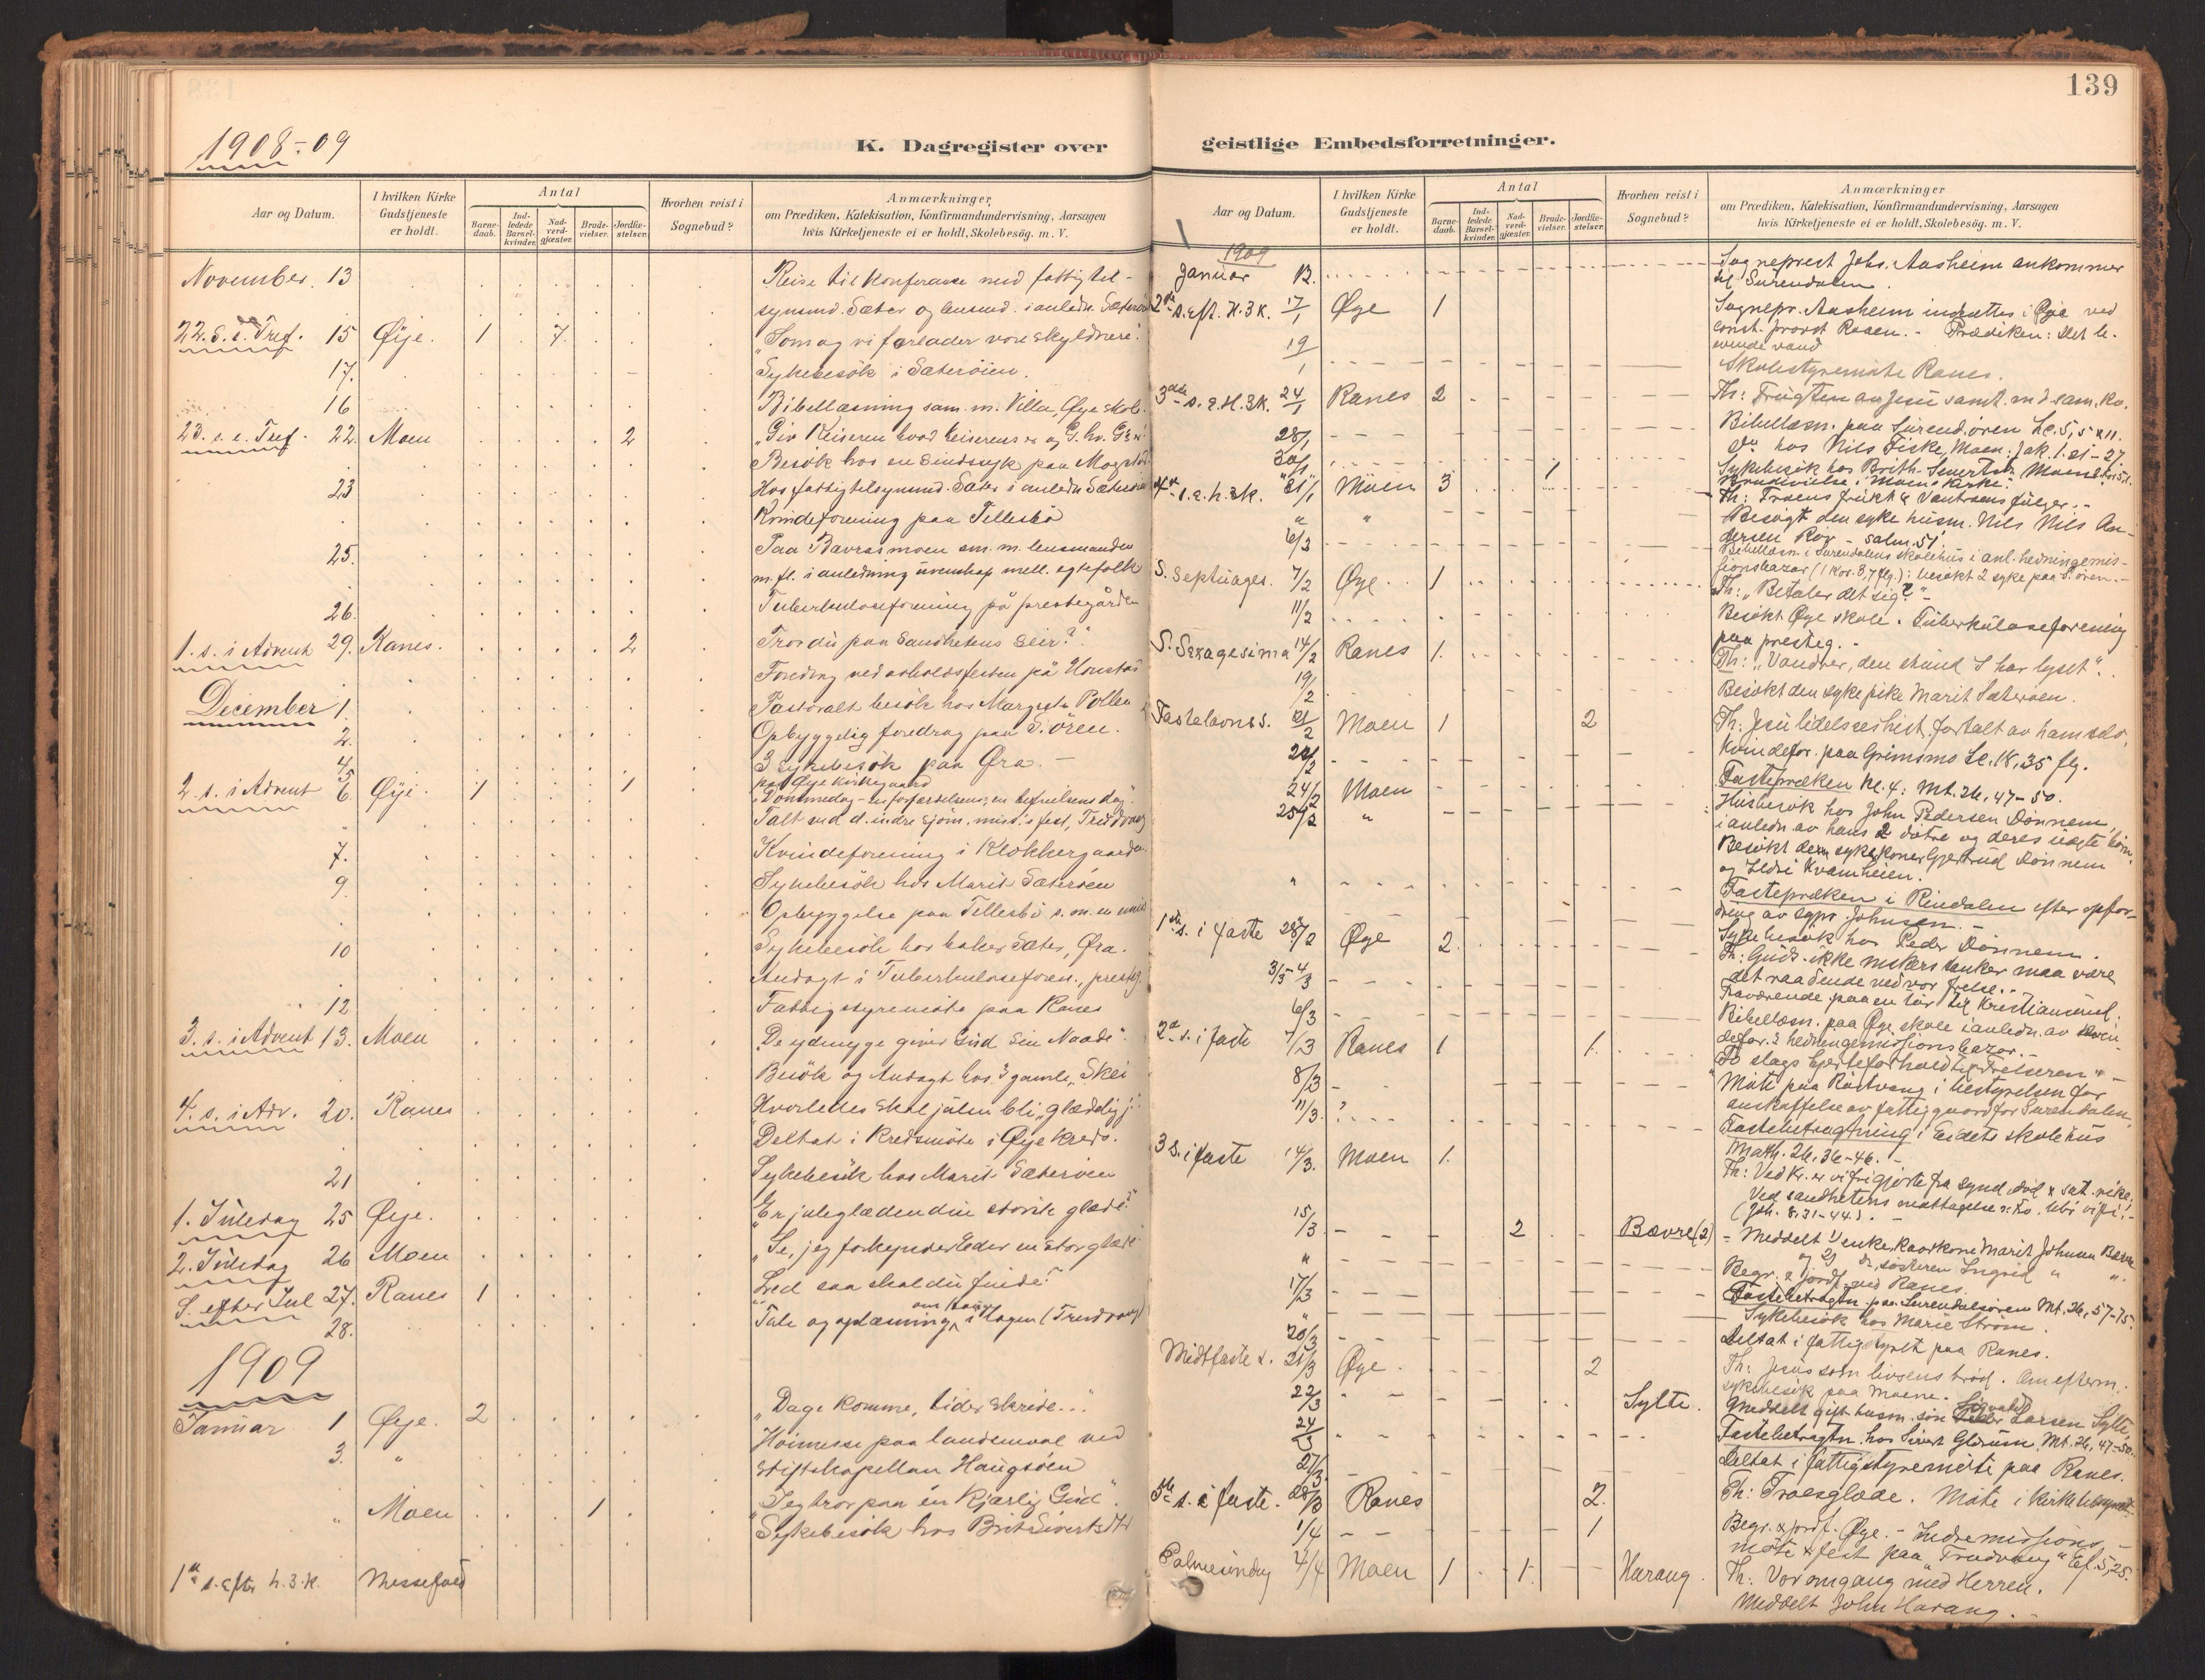 139
1908-09
K. Dagregister over
geistlige Embedsforretninger.
Aar og Datum.
I hvilken Kirke Gudstjeneste er holdt.
Antal
Barne-daab.
Ind-ledede Barsel-kvinder.
Nad-verd-gjæster.
Brude-vielser.
Jordfæ-stelser.
Hvorhen reist i Sognebud?
Anmærkninger,
om Prædiken, Katekisation, Konfirmandundervisning, Aarsagen
hvis Kirketjeneste ei er holdt, Skolebesøg. m. V.
November 13 Reise til Konferanse med fattigtil-
synsmd. Sæter og lensmd. i anledn.
22. S. e. Tref. 15 Øye. 1 7. "Som og vi forlader vore Skyldnere".
17. Sykebesök i Sæteröien.
16 Bibellæsning sam. m. Villa, Øye skole
23. s. e. Tref. 22. Moen 2 "Giv Keiseren hvad keiserens er og G. hv. G. er"
Besök hos en Sindssyk paa
23 Hos fattigtilsynsmd. Sæter i anledn.
Kvindeforening paa Tellesbö
25. Paa Bævrasmoen sm. m. lensmanden
m. fl. i anledning uvenskap mell. egtefolk
26. Tuberkuloseforening på prestegården
1. s. i Advent 29. Ranes. 2 Tror du paa Sandhetens Seir?"
Foredrag ved avholdsfesten på
December 1. Pastoralt besök hos Margrete Pollen
2. Opbyggelig foredrag paa S. ören.
4. 3 sykebesök paa Øra. -
5 paa Øye Kirkegaard
2. s. i Advent 6. Øye. 1 1 "Dommedag - en forfærdelsens, en befrielsens dag"
Talt ved d. indre sjöm. miss.'s fest,
7. Kvindeforening i Klokkergaarden
9. Sykebesök hos Marit Sæteröen
Opbyggelse paa Tellesbö s. m. en
10 Sykebesök hos baker Sæter, Øra.
Andagt i Tuberkuloseforen., prestg.
12 Fattigstyremöte paa Ranes
3. s. i Advent 13. Moen "De ydmyge giver Gud sin Naade".
Besök og Andagt hos 3 gamle, Skei
4. s. i Adv. 20. Ranes Hvorledes skal julen bli "glædelig j."
Deltat i Kredsmöte i Øye Kreds.
21 Sykebesök hos Marit Sæteröen
1. Juledag 25 Øye. "Er juleglæden din störste glæde?"
2. Juledag 26 Moen "Se, jeg forkynder Eder en stor glæde"
S. efter Jul 27. Ranes 1 "Led saa skal du finde"
28. Tale og oplæsning i Hagen
1909
Januar 1 Øye. 2 "Dage komme, tider skride..."
3. " Höimesse paa landsmaal ved
stiftskapellan Haugsöen
" Moen 1 "Jeg tror paa en Kjærlig Gud".
Sykebesök hos Brit Sivertsdtr
1ste s. efter h. 3. k. Messefald
1909
Januar 12. Sogneprest Johs. Aasheim ankommer
til Surendalen.
2den s. eft. H. 3 K. 17/1 Øye 1 Sognepr. Aasheim indsættes i Øye ved
const. provst Roaen. - Prædiken: Det le-
vende vand
19/1 Skolestyremøte Ranes.
3die s. e. H. 3K. 24/1 Ranes 2 Th: Frugten av Jesu samt. m. d. sam. kv.
28/1 Bibellæsn. paa Surend.øren Lc. 5, 5 & 11.
30/1 do hos Nils Fiske, Moen: Jak. 1. 21-27.
Sykebesøk hos Brith Sivertsdtr. Moen
1 Brudevielse i Moens kirke.
4de s. e. h. 3k. 31/1 Moen 3 Th: Troens frukt & Vantroens følger. -
" " Besøgt den syke husm. Nils Nils An-
dersen Røv - salm. 51.
6/2 Bibellæsn. i Surendalens skolehus i anl. hedningemis-
sionsbazar (1 Kor. 8,7 flg.); besøkt 2 syke paa S. øren. -
S. Septuages. 7/2 Øye. 1 Th: "Betaler det sig?" -
11/2 Besøkt Øye skole. Tuberkuloseforening
paa presteg. -
S. Sexagesima 14/2 Ranes 1. Th: "Vandrer, den stund I har lyset".
19/2 Besøkt den syke pike Marit Sæterøen.
Fastelavnss. 21/2 Moen 1 2 Th: Jesu lidelseshist. fortalt av ham selv.
Kvindefor. paa Grimsmo Lc. 18, 35 flg.
24/2 Moen Fastepræken kl. 4: Mt. 26, 47-50.
25/2 " Husbesøk hos John Pedersen Dønnem,
i anledn. av hans 2 døtre og deres uegte børn.
Besøkt den syke kone Gjertrud Dønnem
og Ildri Kvamheien.
" Fastepræken i Rindalen efter opfor-
dring av sgpr. Johnsen. -
Sykebesøk hos Peder Dønnem.
1ste s. i faste 28/2 Øye 2. Th: Guds ikke menskers tanker maa være
det raadende ved vor frelse. -
3/3-4/3 Fraværende paa en tur til Kristiansund.
6/3 Bibellæsn. paa Øye skole i anledn. av kvin-
defor.s hedningemissionsbazar. -
2den s. i faste 7/3 Ranes 1 1. "To slags hjerteforhold til Frelseren" -
8/3 Møte paa Røstvang i bestyrelsen for
anskaffelse av fattiggaard for Surendalen.
11/3. Fastebetragtning i Eidets skolehus
Math. 26, 36-46. -
3 s. i faste 14/3. Moen 1. Th: Ved Kr. er vi frigjorte fra synd, død & sat. rike.
Ved sandhetens mottagelse
(Joh. 8, 31-44). -
15/3 2 Bævre(2) - Meddelt 1) enke, kaarkone Marit Johnsen Bævre
og 2) søsteren Ingrid " ".
" Begr. & jordf. ved Ranes.
17/3 Fastebetragtn. paa Surendalsøren Mt. 26, 57-75.
" Sykebesøk hos Marie Strøm.
20/3 Deltat i fattigstyret paa Ranes.
Midtfaste s. 21/3 Øye. 2 Th: Jesus som livsens brød. Om efterm.
sykebesøk paa Moene.
22/3 Sylte. Meddelt gift husm. søn Larsen Sylte.
24/3 Fastebetragtn. hos Sivert Glærum. Mt. 26, 47-50.
27/3 Deltat i fattigstyremøte paa Ranes.
5te s. i faste. 28/3 Ranes 2. Th: Troesglæde. Møte i kirketilsynet.
1/4 1 Begr. & jordf. Øye. - Indremissions-
møte & fest paa "Trudvang" Ef. 5, 25.
Palmesøndag 4/4 Moen 1 1. Harang. Th: Vor omgang med Herren.
Meddelt John Harang. -